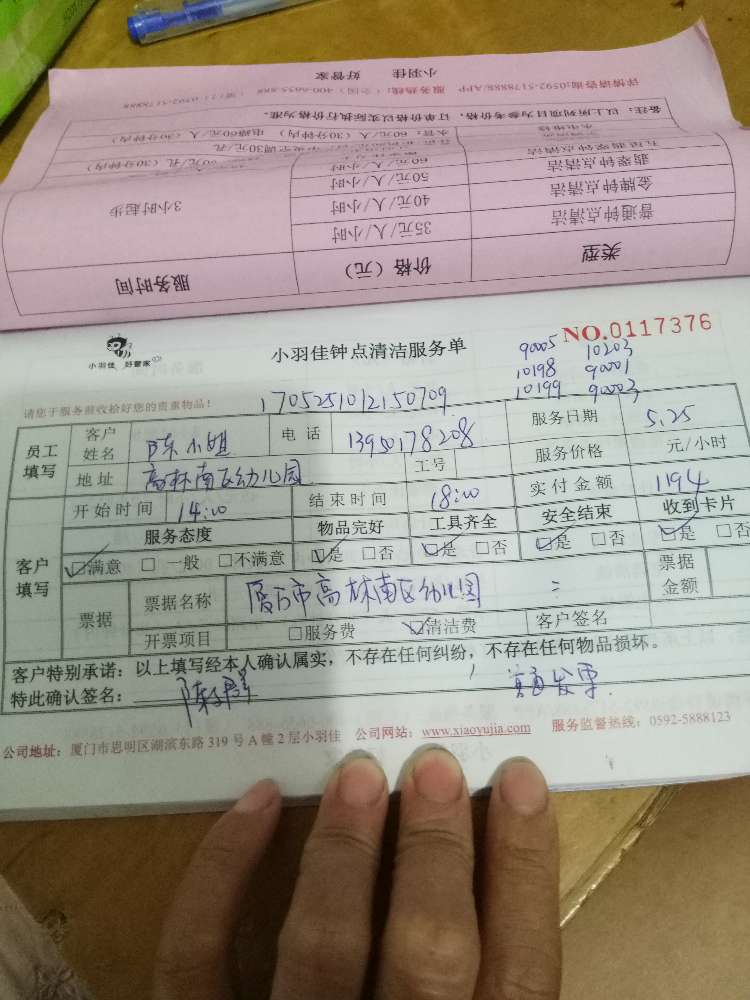 小羽佳 好管家
详情请咨询:0592-5178888/APP 服务热线:(全国)400-6655-888
备注:以上两列项目为参考价格,订单价格以实际执行价格为准。
水管:60元/人(30分钟内) 电路60元/人(30分钟内)
翡翠钟点清洁 60元/人/小时
金牌钟点清洁 50元/人/小时
普通钟点清洁 40元/人/小时 3小时起步
35元/人/小时
类型 价格(元) 服务时间
小羽佳 好管家
小羽佳钟点清洁服务单
NO.0117376
90005 10203
10198 90001
10199 90003
请您于服务前收拾好您的贵重物品!
1705251012150709
员工填写 客户姓名 陈小姐 电话 13950178208 服务日期 5.25
地址 高林南区幼儿园 工号 服务价格 元/小时
客户填写 开始时间 14:00 结束时间 18:00 实付金额 1194
服务态度 物品完好 工具齐全 安全结束 收到卡片
☑满意 □一般 □不满意 ☑是 □否 ☑是 □否 ☑是 □否 ☑是 □否
票据 票据名称 厦门市高林南区幼儿园 票据金额
开票项目 □服务费 ☑清洁费 客户签名
客户特别承诺:以上填写经本人确认属实,不存在任何纠纷,不存在任何物品损坏。
特此确认签名: 普通发票
公司地址:厦门市思明区湖滨东路319号A幢2层小羽佳 公司网站:www.xiaoyujia.com 服务监督热线:0592-5888123